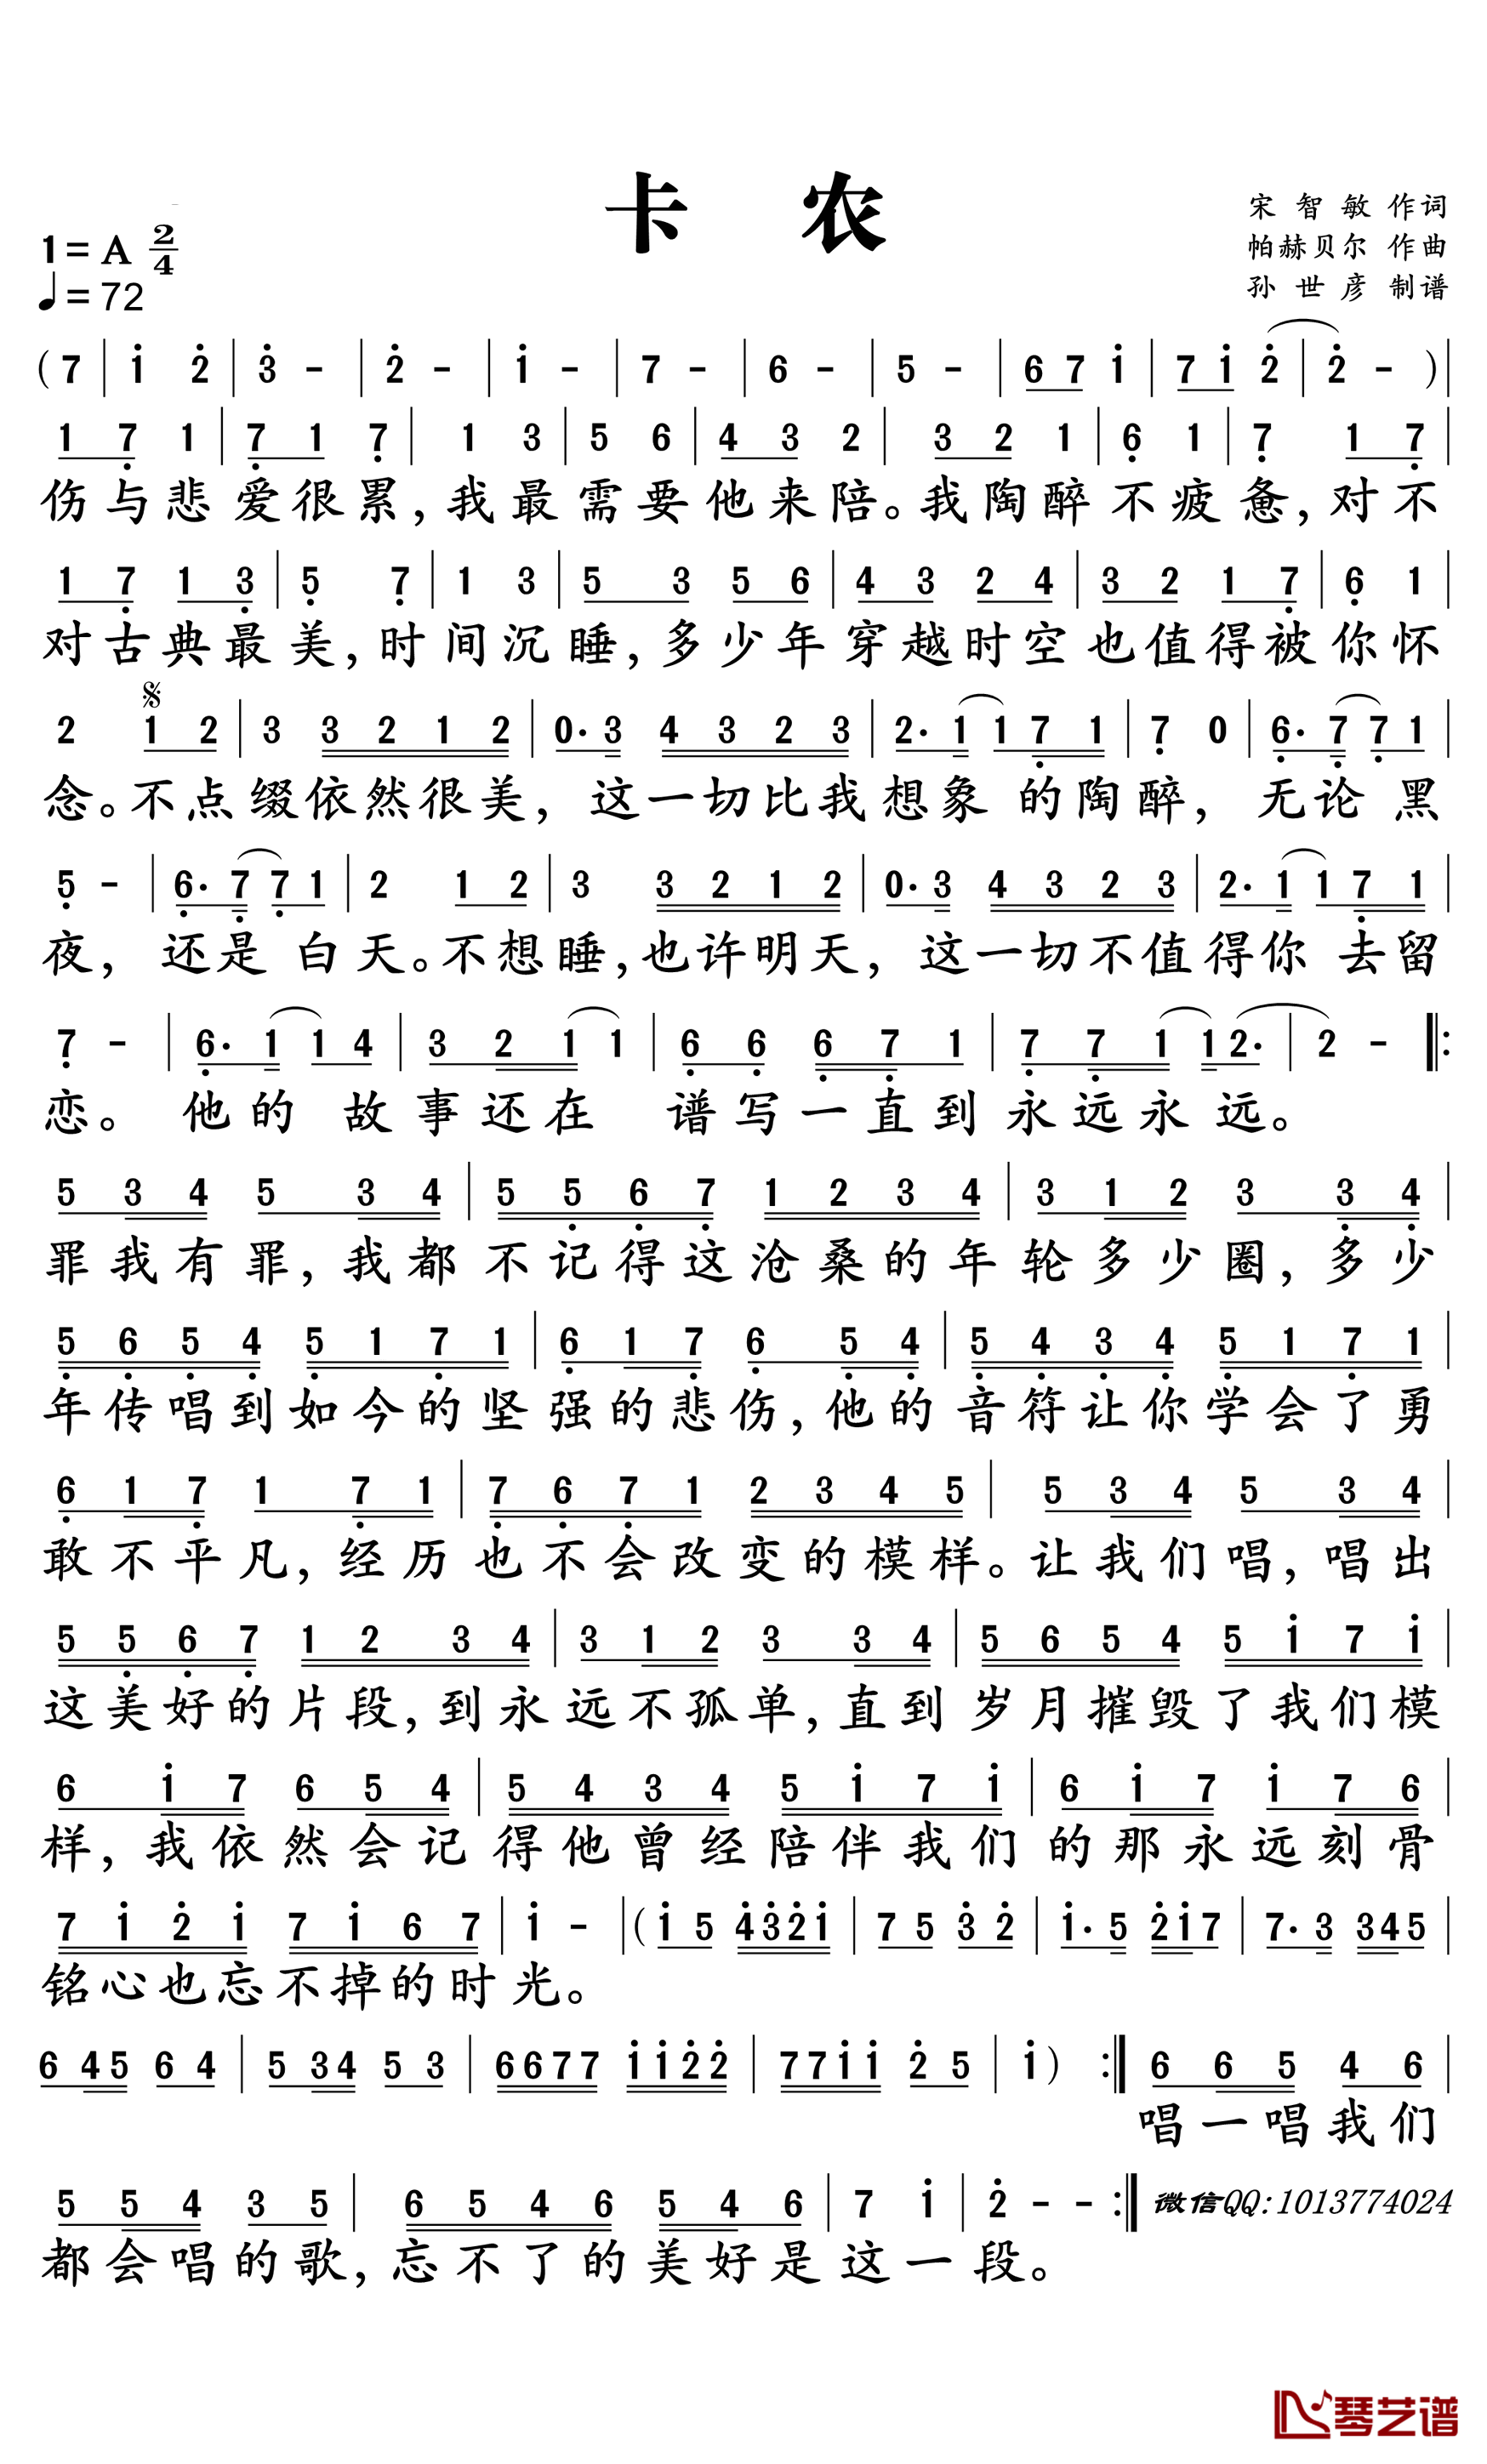 卡 农
宋 智 敏 作词
帕赫贝尔 作曲
孙 世 彦 制谱
1= A 2/4
♩= 72
(7 | 1̇ 2̇ | 3̇ - | 2̇ - | 1̇ - | 7 - | 6 - | 5 - | 6 7 1̇ | 7 1̇ 2̇ | 2̇ - ) |
1 7̣ 1 | 7̣ 1 7̣ | 1 3 | 5 6 | 4 3 2 | 3 2 1 | 6̣ 1 | 7̣ 1 7̣ |
伤与悲爱很累,我最需要他来陪。我陶醉不疲惫,对不
1 7̣ 1 3̣ | 5̣ 7̣ | 1 3 | 5 3 5 6 | 4 3 2 4 | 3 2 1 7̣ | 6̣ 1 |
对古典最美,时间沉睡,多少年穿越时空也值得被你怀
2 𝄋1 2 | 3 3 2 1 2 | 0· 3 4 3 2 3 | 2· 1 1 7̣ 1 | 7̣ 0 | 6̣· 7̣ 7̣ 1 |
念。不点缀依然很美,这一切比我想象的陶醉,无论黑
5̣ - | 6̣· 7̣ 7̣ 1 | 2 1 2 | 3 3 2 1 2 | 0· 3 4 3 2 3 | 2· 1 1 7̣ 1 |
夜,还是白天。不想睡,也许明天,这一切不值得你去留
7̣ - | 6̣· 1 1 4 | 3 2 1 1 | 6̣ 6̣ 6̣ 7̣ 1 | 7̣ 7̣ 1 1 2· | 2 - ‖:
恋。他的故事还在 谱写一直到永远永远。
5 3 4 5 3 4 | 5 5̣ 6̣ 7̣ 1 2 3 4 | 3 1 2 3 3̣ 4̣ |
罪我有罪,我都不记得这沧桑的年轮多少圈,多少
5̣ 6̣ 5̣ 4̣ 5̣ 1 7̣ 1 | 6̣ 1 7̣ 6̣ 5̣ 4̣ | 5̣ 4̣ 3̣ 4̣ 5̣ 1 7̣ 1 |
年传唱到如今的坚强的悲伤,他的音符让你学会了勇
6̣ 1 7̣ 1 7̣ 1 | 7̣ 6̣ 7̣ 1 2 3 4 5 | 5 3 4 5 3 4 |
敢不平凡,经历也不会改变的模样。让我们唱,唱出
5 5̣ 6̣ 7̣ 1 2 3 4 | 3 1 2 3 3 4 | 5 6 5 4 5 1̇ 7 1̇ |
这美好的片段,到永远不孤单,直到岁月摧毁了我们模
6 1̇ 7 6 5 4 | 5 4 3 4 5 1̇ 7 1̇ | 6 1̇ 7 1̇ 7 6 |
样,我依然会记得他曾经陪伴我们的那永远刻骨
7 1̇ 2̇ 1̇ 7 1̇ 6 7 | 1̇ - | (1̇ 5 4̇3̇2̇1̇ | 7 5 3̇ 2̇ | 1̇· 5 2̇1̇7 | 7· 3 345 |
铭心也忘不掉的时光。
6 45 6 4 | 5 34 5 3 | 6677 1̇1̇2̇2̇ | 771̇1̇ 2̇ 5 | 1̇) :‖ 6 6 5 4 6 |
唱一唱我们
5 5 4 3 5 | 6 5 4 6 5 4 6 | 7 1̇ | 2̇ - - :‖ 微信QQ:1013774024
都会唱的歌,忘不了的美好是这一段。
琴艺谱